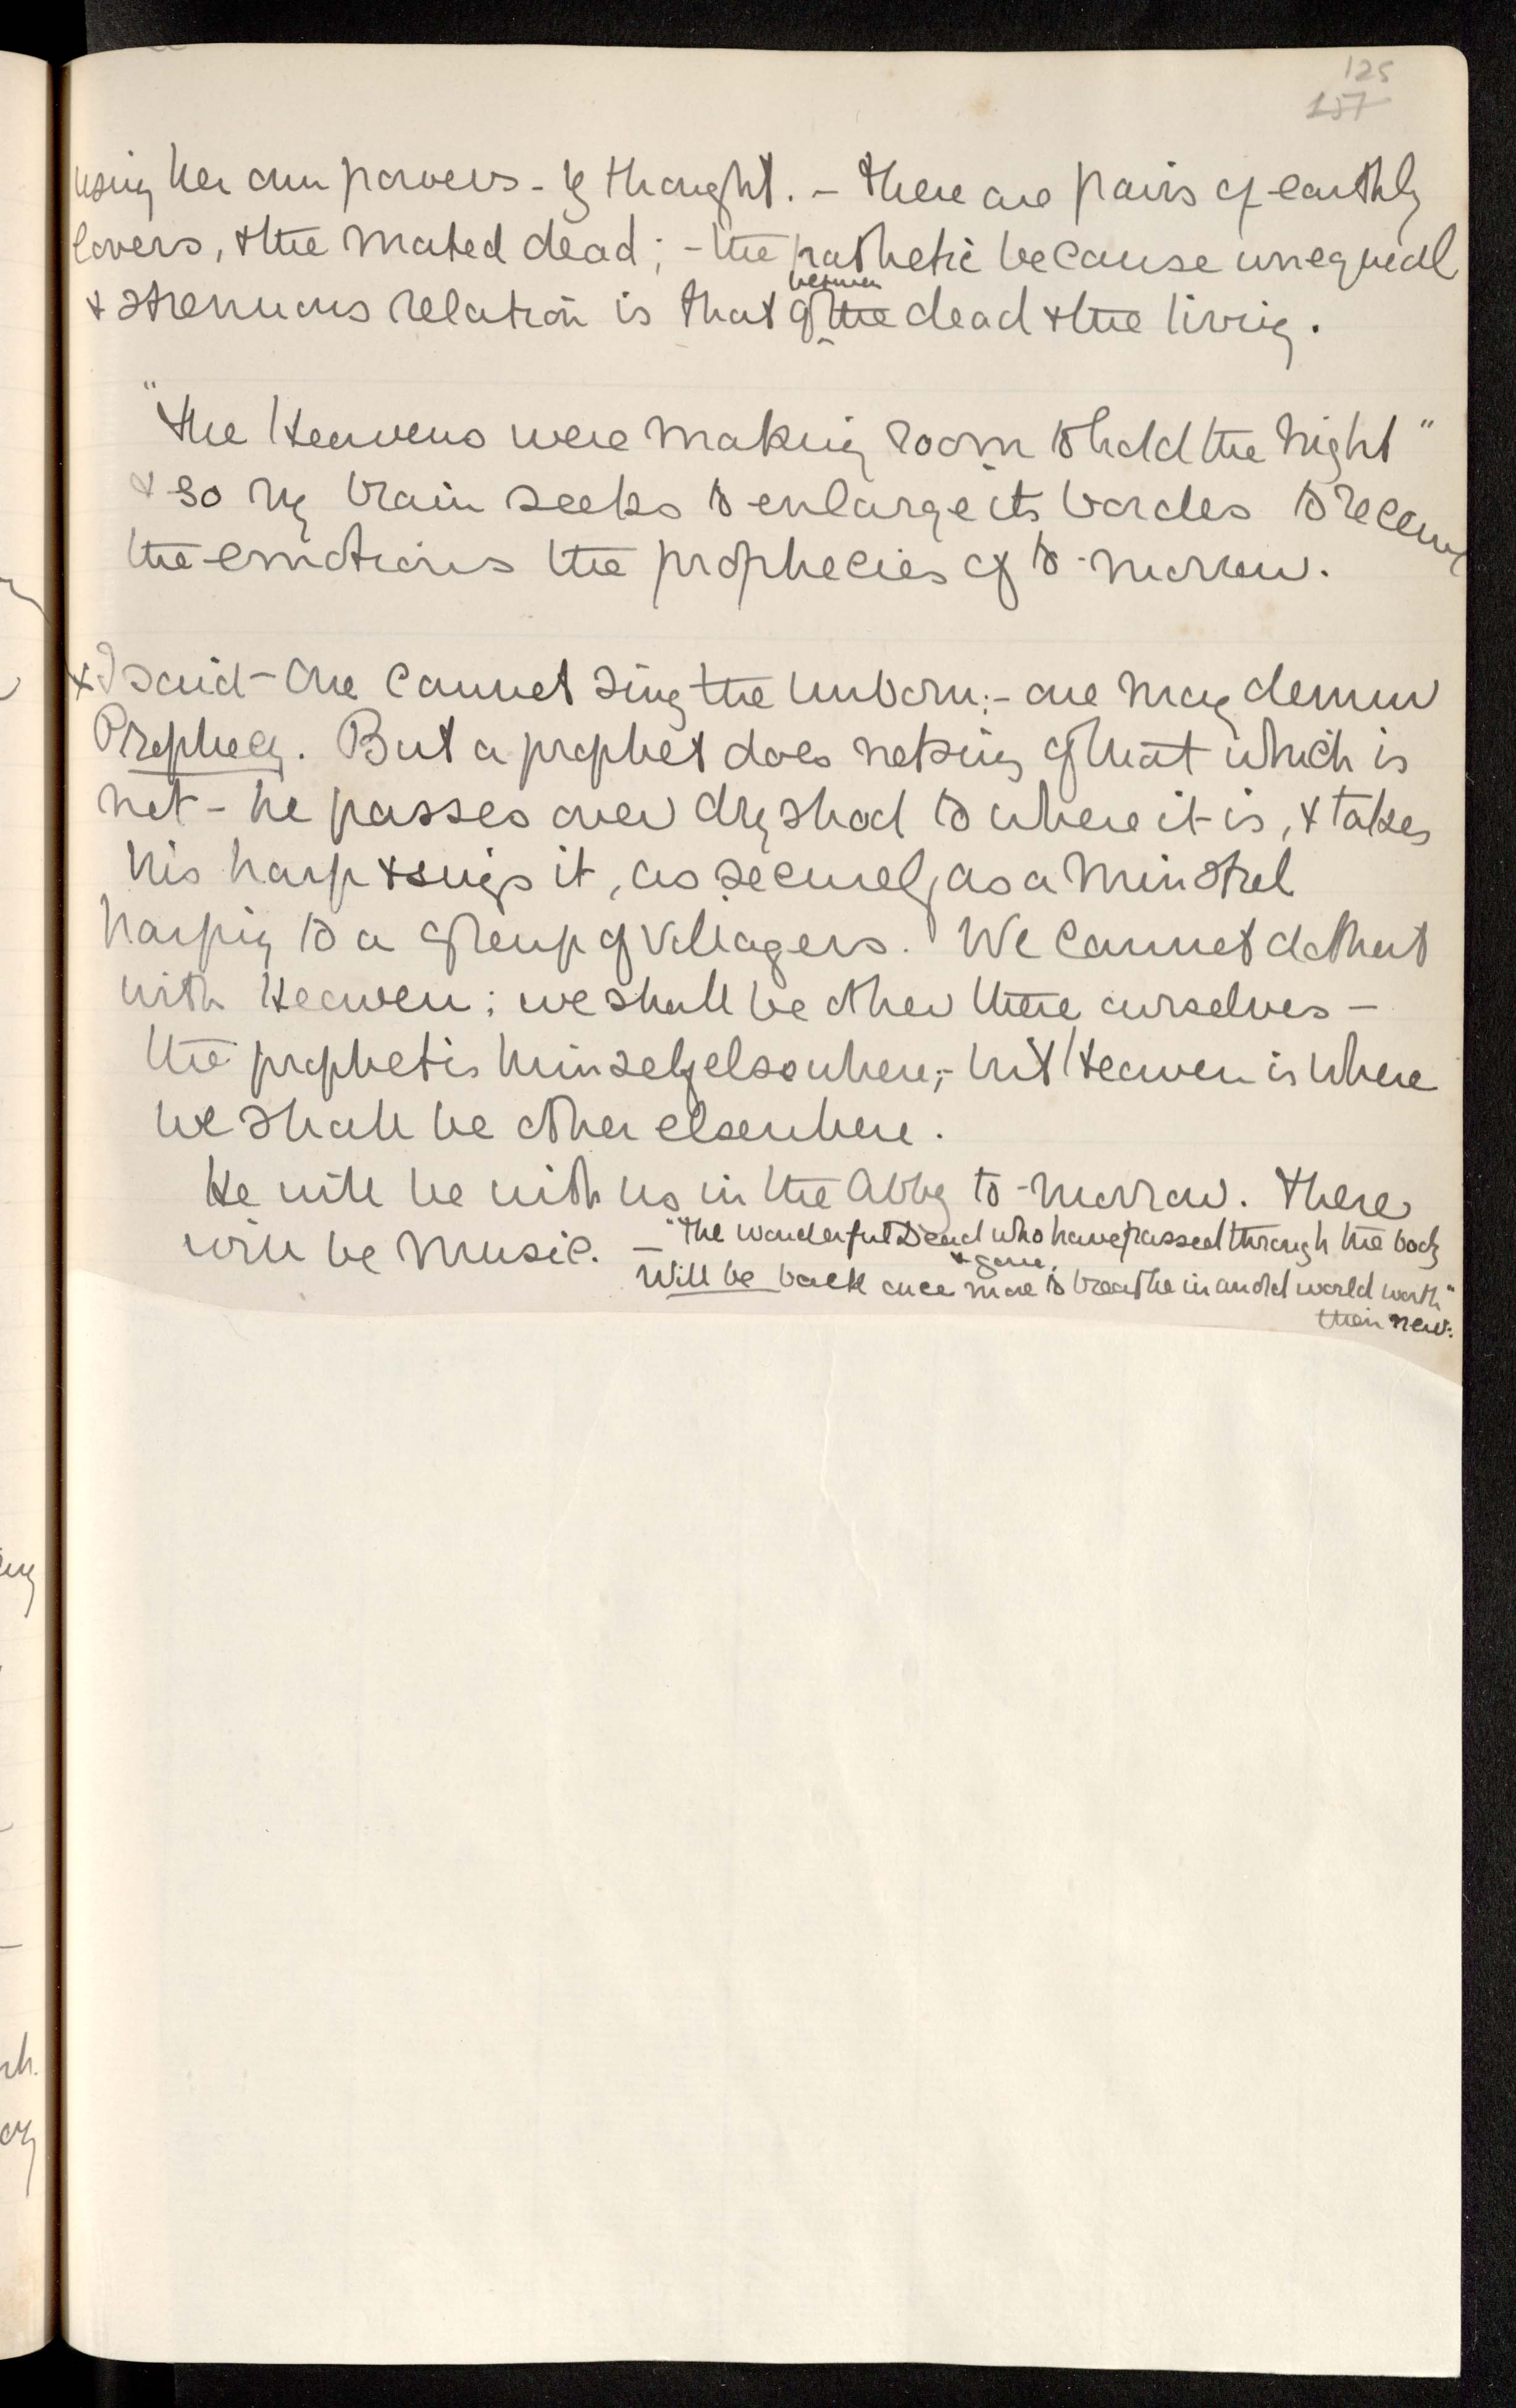 125
157
using her own powers - of thought. - There are pairs of earthly
lovers, & the mated dead; - the pathetic because unequal
& strenuous relation is that of the between dead & the living.
"The Heavens were making room to hold the night"
& so my brain seeks to enlarge its borders to receive
the emotions the prophecies of to-morrow.
x I said - One cannot sing the unborn; - one may demur
Prophecy. But a prophet does not sing of that which is
not - he passes over dry shod to where it is, & takes
his harp & sings it, as securely as a minstrel
harping to a group of villagers. We cannot do that
with Heaven; we shall be other there ourselves -
the prophet is himself elsewhere; - but Heaven is where
we shall be other elsewhere.
He will be with us in the Abbey to-morrow. There
will be music. - "The wonderful Dead who have passed through the body
& gone,
Will be back once more to breathe in an old world worth"
their new: